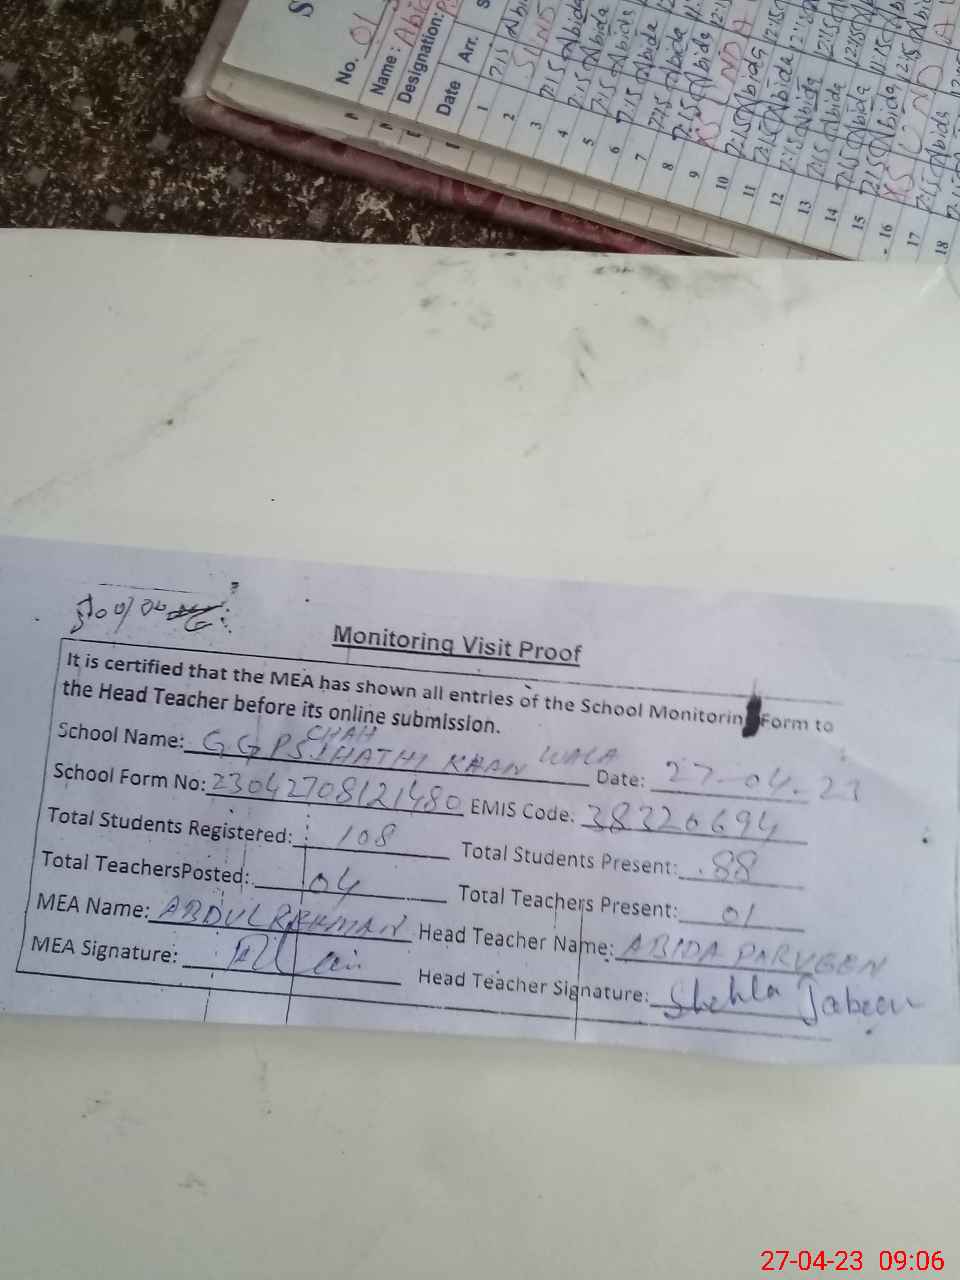 No. 01
Name: Abi
Designation: P
Date Arr.
1 7:15 Abi
2 SUND
3 7:15 Abida
4 7:15 Abida
5 7:15 Abida
6 7:15 Abida
7 7:15 Abida
8 7:15 Abida 12:1
9 SUNDA
10 7:15 Abida 12:15
11 7:15 Abida 12:15
12 7:15 Abida 12:15
13 7:15 Abida 12:15
14 7:15 Abida 12:15
15 7:15 Abida 12:15
16 SUNDA
17 7:15 Abida
18
Monitoring Visit Proof
It is certified that the MEA has shown all entries of the School Monitorin Form to
the Head Teacher before its online submission.
CHAH
School Name: GGPS JHATHI KHAN WALA Date: 27-04-23
School Form No: 23042708121480 EMIS Code: 38320694
Total Students Registered: 108 Total Students Present: 88
Total TeachersPosted: 04 Total Teachers Present: 01
MEA Name: ABDUL REHMAN Head Teacher Name: ABIDA PARVEEN
MEA Signature: Head Teacher Signature: Shehla Jabeen
27-04-23 09:06